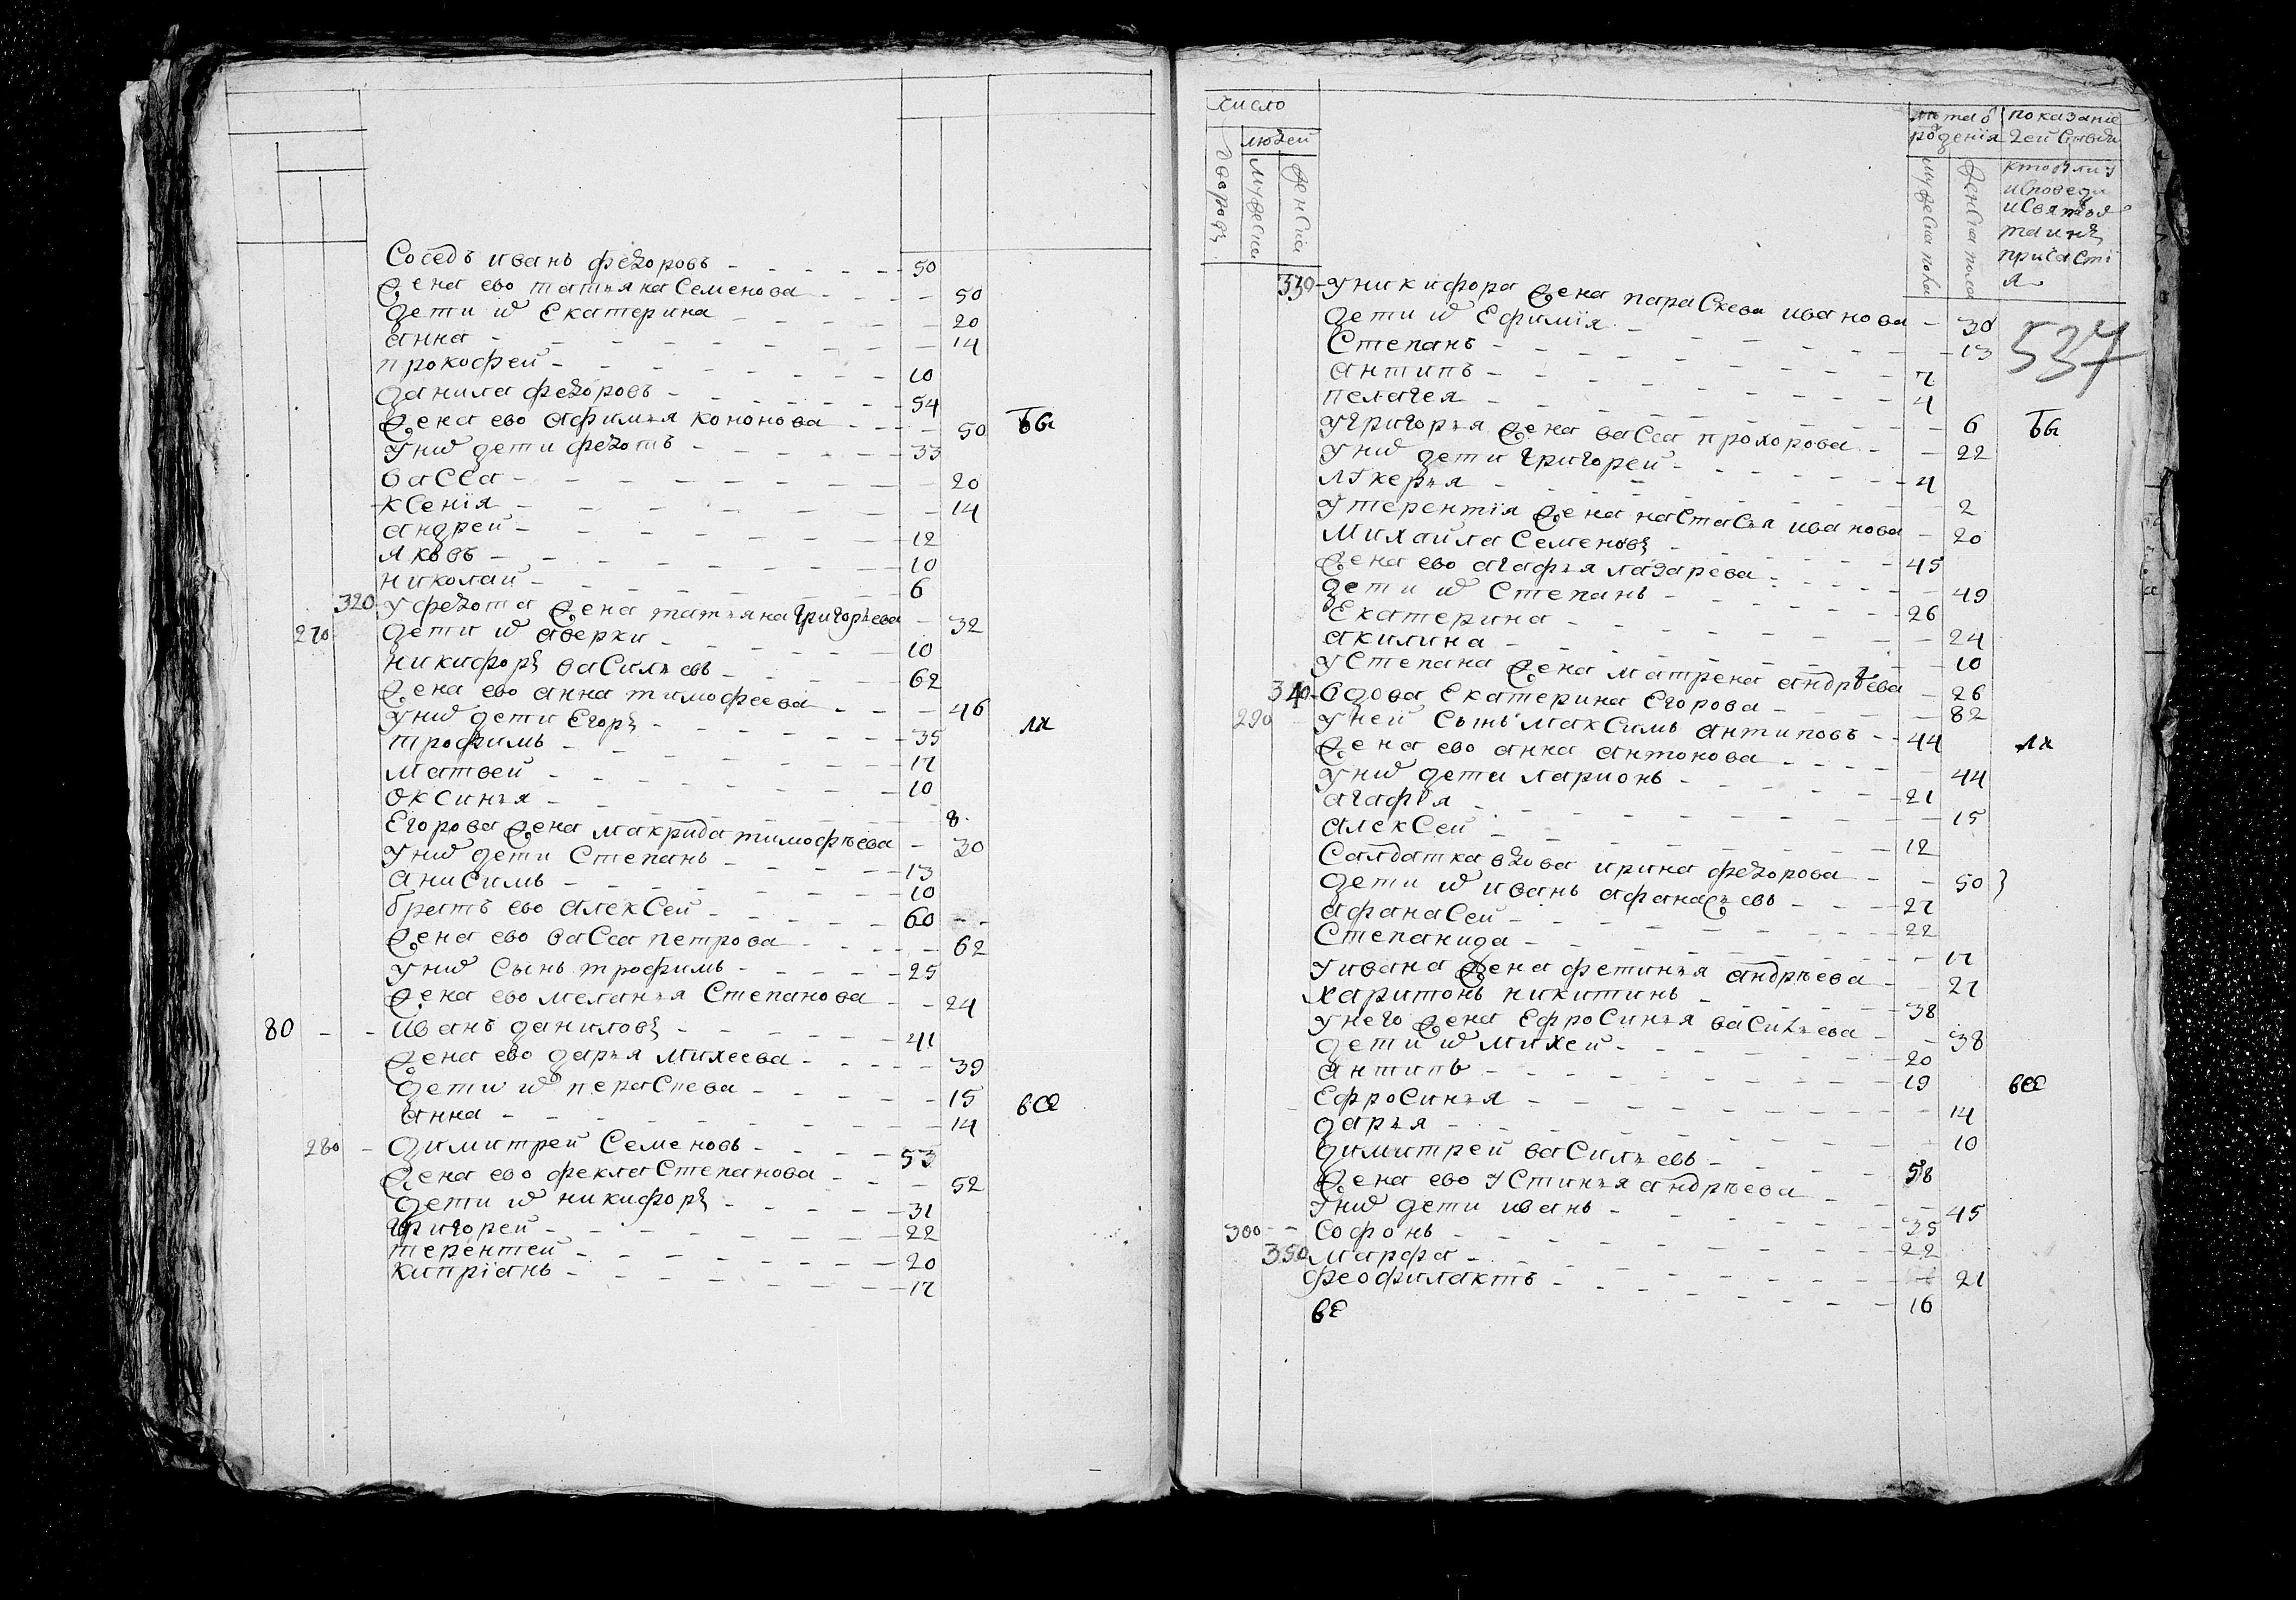 Соседъ иванъ федоровъ - - - - - 50
жена ево татьяна Семенова - - - - 50
дети иⷯ Екатерина - - - - - 20
анна - - - - - - - 14
прокофеи - - - - - - 10
данила федоровъ - - - - - 54
жена ево афимья кононова - - - - 50 бы
У ниⷯ дети федотъ - - - - - 33
васса - - - - - - - 20
ксенїя - - - - - - 14
андреи - - - - - - 12
яковъ - - - - - - 10
николаи - - - - - - 6
320 У федота жена татьяна григорьева - 32
270 дети иⷯ аверки - - - - - 10
никифоръ васильевъ - - - - 62
жена ево анна тимофеева - - - 46
У ниⷯ дети Егоръ - - - - - 35 ли
трофимъ - - - - - - 17
матвеи - - - - - - 10
оксинья - - - - - - 8
Егорова жена макрида тимофѣева - 30
У ниⷯ дети Степанъ - - - - 13
анисимъ - - - - - - 10
братъ ево алексеи - - - - - 60
жена ево васса петрова - - - - 62
У ниⷯ сынъ трофимъ - - - - - 25
жена ево меланья Степанова - - 24
80 - - иванъ даниловъ - - - - - 41
жена ево дарья михеева - - - - 39
дети иⷯ пераскева - - - - - 15
анна - - - - - - - 14 все
280 - димитреи Семеновъ - - - - 53
жена ево фекла Степанова - - - 52
дети иⷯ никифоръ - - - - - 31
григореи - - - - - - 22
терентеи - - - - - - 20
кипрїанъ - - - - - - 17
число
людеи
дворовъ
мужеска
женска
лѣта ѿ рожденїя
мужеска пола
женска пола
показанїе
деиства
кто был у
исповеди
и святыⷯ
таинъ
причасті
я
537
330 - У никифора жена параскева иванова - 30
дети иⷯ Ефимїя - - - - - 13
Степанъ - - - - - - 7
антипъ - - - - - - 4
пелагея - - - - - - 6 бы
У григорья жена васса прохорова - - 22
У ниⷯ дети григореи - - - - - 4
лукерья - - - - - - 2
У терентїя жена настасья иванова - 20
михаила Семеновъ - - - - - 45
жена ево агафья лазарева - - - - 49
дети иⷯ Степанъ - - - - - 26
Екатерина - - - - - - 24
акилина - - - - - - 10
У Степана жена матрена андрѣева - 26
340 - вдова Екатерина Егорова - - - - 82
290 У неи сынъ максимъ антиповъ - - 44 ли
жена ево анна антонова - - - - 44
У ниⷯ дети ларионъ - - - - - 21
агафья - - - - - - 15
алексеи - - - - - - 12
Салдатка вдова ирина федорова - - 50
дети иⷯ иванъ афанасьевъ - - - - 27
афанасеи - - - - - - 22
Степанида - - - - - - 17
У ивана жена фетинья андрѣева - - 27
харитонъ никитинъ - - - - - 38
У него жена Ефросинья васильева - - 38
дети иⷯ михеи - - - - - - 20
антипъ - - - - - - 19 все
Ефросинья - - - - - - 14
дарья - - - - - - - 10
димитреи васильевъ - - - - - 58
жена ево Устинья андрѣева - - - 45
У ниⷯ дети иванъ - - - - - 35
300 - - Софонъ - - - - - - 22
350 марфа - - - - - - 21
феофилактъ - - - - - - 16
ве